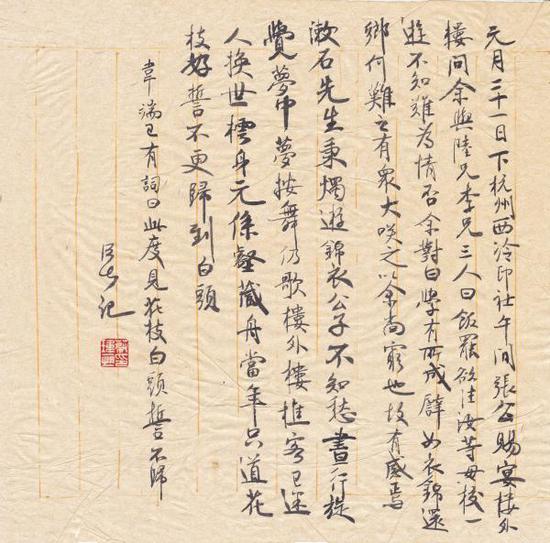 元月三十一日下杭州西泠印社午间張公賜宴樓外
樓间余與陸兄李兄三人曰飯罷欲往汝等母校一
遊不知難為情否余對曰學有所成譬如衣錦還
鄉何難之有衆大咲之以余尚窮也故有感焉
漱石先生秉燭遊錦衣公子不知愁晝行旋
覺夢中夢按舞仍歌樓外樓樵客已迷
人換世身元係壑藏舟當年只道花
枝好誓不更歸到白頭
韋端己有詞曰此度見花枝白頭誓不歸
记